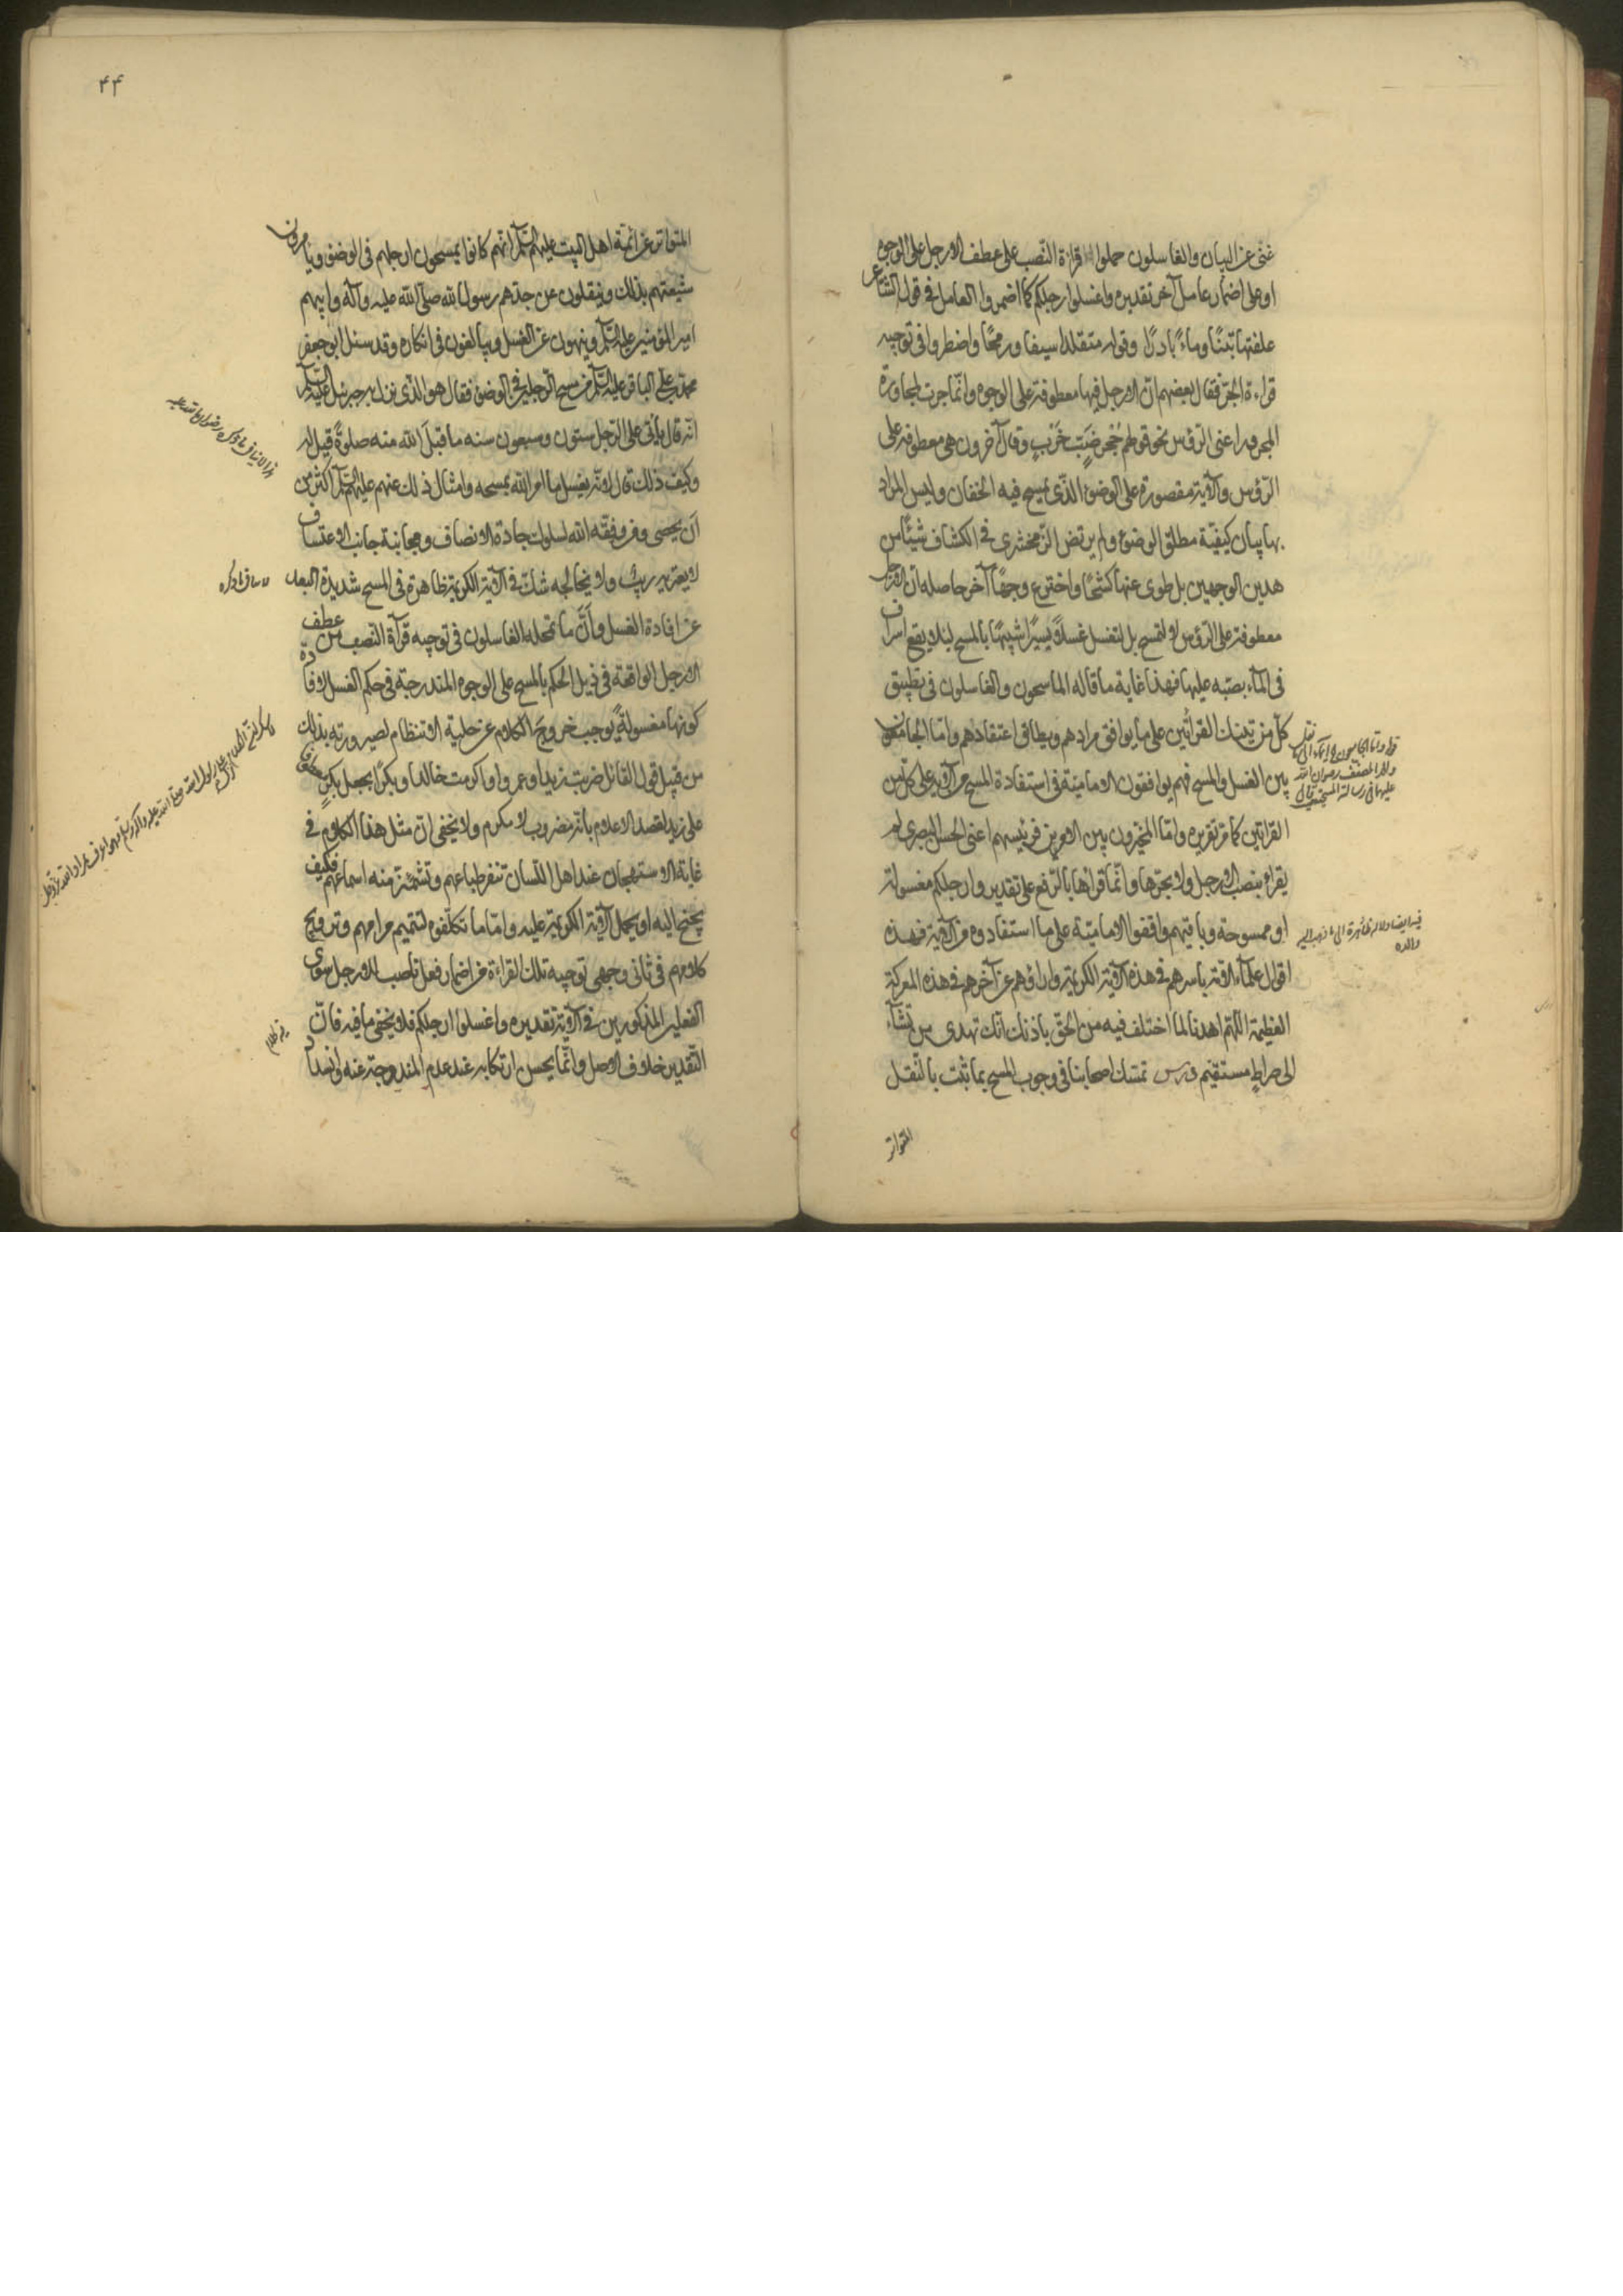 غنى عن البيان والغاسلون حملوا قراءة النصب على عطف الارجل على الوجوه
او على اضمار عامل آخر تقديره واغسلوا ارجلكم كما اضمروا العامل في قول الشاعر
علفتها تبنًا وماءً باردًا وقوله متقلدا سيفا ورمحًا واضطروا في توجيه
قراءة الجر فقال بعضهم ان الارجل فيها معطوفة على الوجوه وانما جرت لمجاورة
المجرور اعنى الرؤس نحو قولهم جُحر ضبٍّ خربٍ وقال آخرون هي معطوفة على
الرؤس والآية مقصورة على الوضوء الذي يمسح فيه الخفان وليس المراد
بها بيان كيفيّة مطلق الوضوء ولم يرتض الزمخشري في الكشاف شيئًا من
هذين الوجهين بل طوى عنها كشحًا واخترع وجهًا آخر حاصله ان الارجل
معطوفة على الرؤس لا لتمسح بل لتغسل غسلًا يسيرًا شبيهًا بالمسح لئلا يقع اسراف
في الماء بصبّه عليها فهذا غاية ما قاله الماسحون والغاسلون في تطبيق
كل من تينك القرائتين على ما يوافق مرادهم ويطابق اعتقادهم واما الجامعون
بين الغسل والمسح فهم يوافقون الامامية في استفادة المسح من الآية على كل من
القرائتين كما مر تقريره واما المخيرون بين الامرين فرئيسهم اعنى الحسن البصرى لم
يقراء بنصب الارجل ولا بجرها وانما قراها بالرفع على تقدير وارجلكم مغسولة
او ممسوحة وباقيهم وافقوا الامامية على ما استفادوه من الآية فهذه
اقوال علماء الامة باسرهم في هذه الآية الكريمة واراؤهم عن آخرهم في هذه المعركة
العظيمة اللهم اهدنا لما اختلف فيه من الحق باذنك انك تهدى من تشآء
الى صراط مستقيم درس تمسك اصحابنا في وجوب المسح بما ثبت بالنقل
المتواتر
فيه ايضا دلالة ظاهرة الى ما ذهب اليه
والده
۴۴
المتواتر عن ائمة اهل البيت عليهم السلام انهم كانوا يمسحون ارجلهم في الوضوء ويامرون
شيعتهم بذلك وينقلون عن جدهم رسول الله صلى الله عليه وآله وابيهم
امير المؤمنين عليه السلام وينهون عن الغسل ويبالغون في انكاره وقد سئل ابو جعفر
محمد بن علي الباقر عليه السلام عن مسح الرجلين في الوضوء فقال هو الذي نزل به جبرئيل عليه السلام
انه قال يأتي على الرجل ستون وسبعون سنه ما قبلَ الله منه صلوةً قيل له
وكيف ذلك قال لانه يغسل ما امر الله بمسحه وامثال ذلك عنهم عليهم السلام اكثر من
أن يحصى ومن وفقه الله لسلوك جادة الانصاف ومجانبة جانب الاعتساف
لا يعتريه ريب ولا يخالجه شك في ان الآية الكريمة ظاهرة في المسح شديدة البعد
عن افادة الغسل وأنّ ما تمحله الغاسلون في توجيه قرآة النصب من عطف
الارجل الواقعة في ذيل الحكم بالمسح على الوجوه المندرجة في حكم الغسل لافادة
كونها مغسولةً يوجب خروجَ الكلام عن حلية الانتظام لصيرورته بذلك
من قبيل قول القائل ضربت زيدا وعمروا واكرمت خالدا وبكرًا بجعل بكرٍ معطوفا
على زيد لقصد الاعلام بانه مضروب لا مكرم ولا يخفى ان مثل هذا الكلام في
غاية الاستهجان عند اهل اللسان تنفر طباعهم وتشمئز منه اسماعهم فكيف
يجنح اليه او يحمل الآية الكريمة عليه واما ما تكلفوه لتتميم مرامهم وترويج
كلامهم في ثانى وجهى توجيه تلك القراءة من اضمار فعل ناصب للارجل سوى
الفعلين المذكورين في الآية تقديره واغسلوا ارجلكم فلا يخفى ما فيه فان
التقدير خلاف الاصل وانما يحسن ارتكابه عند عدم المندوحة عنه وانسداد